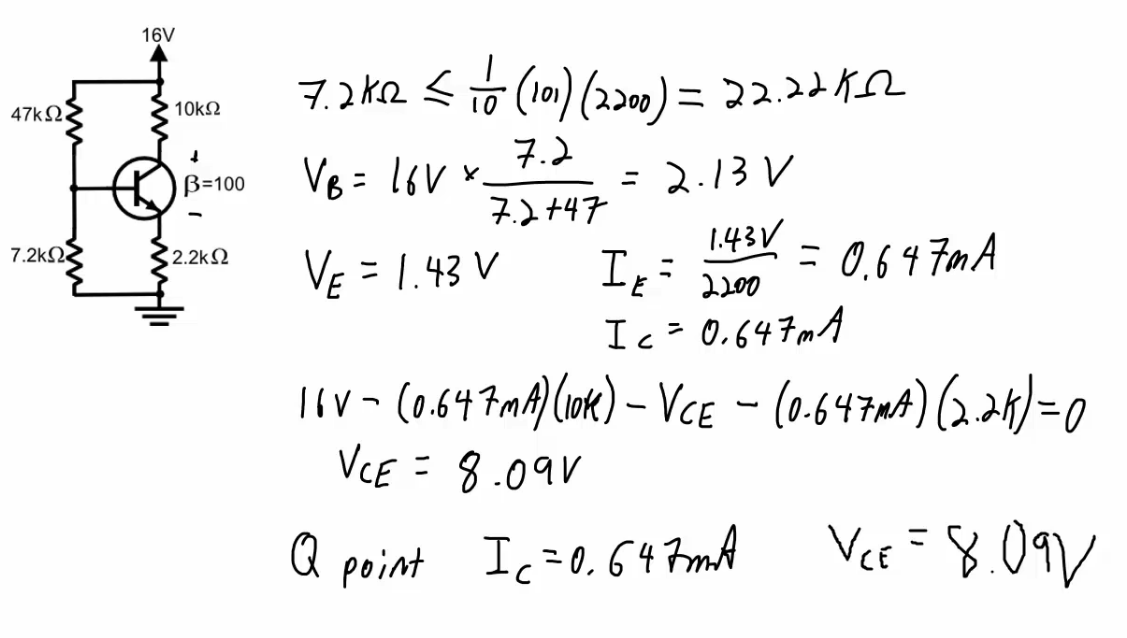 16V
47kΩ
10kΩ
+
β=100
−
7.2kΩ
2.2kΩ
7.2KΩ ≤ 1/10 (101)(2200) = 22.22KΩ
V_B = 16V × 7.2/(7.2+47) = 2.13 V
V_E = 1.43 V
I_E = 1.43V/2200 = 0.647mA
I_C = 0.647mA
16V - (0.647mA)(10K) - V_CE - (0.647mA)(2.2K) = 0
V_CE = 8.09V
Q point I_C = 0.647mA V_CE = 8.09V